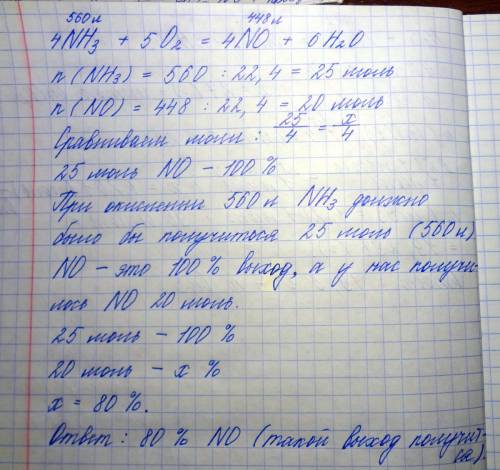 560 л 448 л
4NH3 + 5O2 = 4NO + 6H2O
n (NH3) = 560 : 22,4 = 25 моль
n (NO) = 448 : 22,4 = 20 моль
Сравниваем моли : 25/4 = x/4
25 моль NO – 100 %
При окислении 560 л NH3 должно
было бы получиться 25 моль (560 л)
NO – это 100 % выход, а у нас получи-
лось NO 20 моль.
25 моль – 100 %
20 моль – x %
x = 80 %.
Ответ : 80 % NO (такой выход получит-
ся).